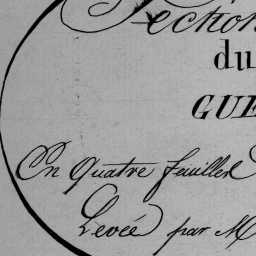 Section
du
GUE
En Quatre feuilles
Levée par M